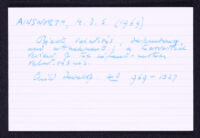 AINSWORTH, M. D. S. (1969)
Object relations, dependency,
and attachment: a theoretical
review of the infant-mother
relationship.
Child Develop. 40 969-1027